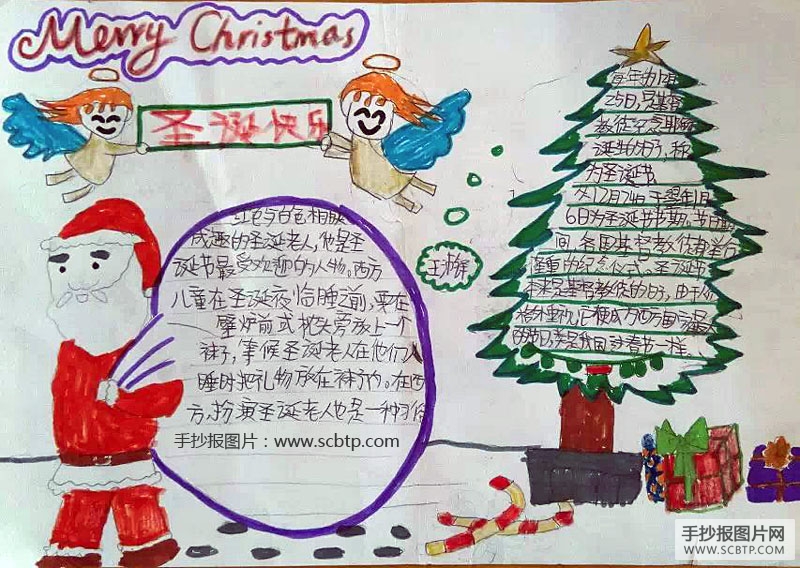 Merry Christmas
圣诞快乐
红色与白色相映
成趣的圣诞老人,他是圣
诞节最受欢迎的人物。西方
儿童在圣诞夜临睡之前,要在
壁炉前或枕头旁放上一个
袜子,等候圣诞老人在他们入
睡时把礼物放在袜子内。在西
方,扮演圣诞老人也是一种习俗
手抄报图片:www.scbtp.com
每年的12月
25日,是基督
教徒纪念耶稣
诞生的日子,称
为圣诞节
从12月24日于翌年1月
6日为圣诞节节期。节日期
间,各国基督教徒都举行
隆重的纪念仪式。圣诞节
本来是基督教徒的节日,由于人们
格外重视,它便成为
的节日,类是我国过春节一样。
手抄报图片网
WWW.SCBTP.COM